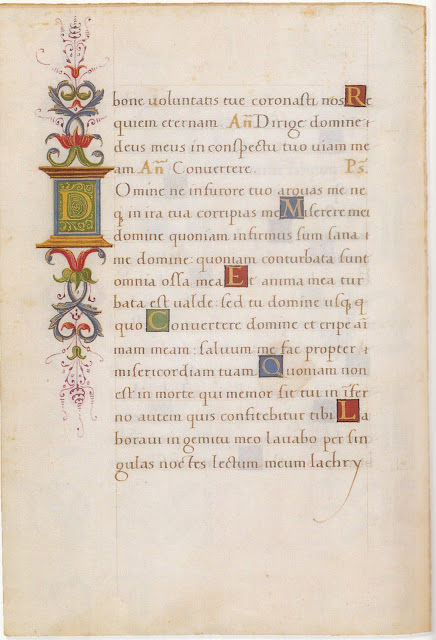 bone uoluntatis tue coronasti nos Re
quiem eternam. Añ Dirige domine
deus meus in conspectu tuo uiam me
am. Añ Conuertere. Ps̃.
Domine ne in furore tuo arguas me ne
q, in ira tua corripias me Miserere mei
domine quoniam infirmus sum sana
me domine: quoniam conturbata sunt
omnia ossa mea Et anima mea tur
bata est ualde: sed tu domine usq, q
quo Conuertere domine et eripe aĩ
mam meam: saluum me fac propter
misericordiam tuam. Quoniam non
est in morte qui memor sit tui in ĩfer
no autem quis confitebitur tibi La
boraui in gemitu meo lauabo per sin
gulas noctes lectum meum lachry